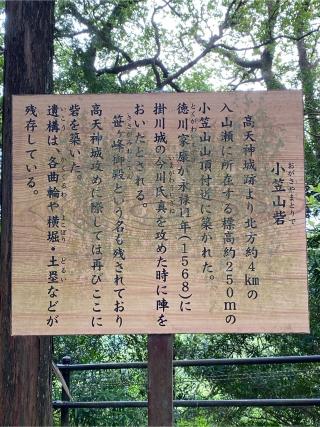 小笠山砦
おがさやまとりで
高天神城跡より北方約4kmの
入山瀬に所在する標高約250mの
小笠山山頂付近に築かれた。
徳川家康が永禄11年(1568)に
とくがわ
掛川城の今川氏真を攻めた時に陣を
おいたとされる。
笹ヶ峰御殿という名も残されており
高天神城攻めに際しては再びここに
砦を築いた。
遺構は、各曲輪や横堀・土塁などが
いこう
よこぼり
どるい
残存している。